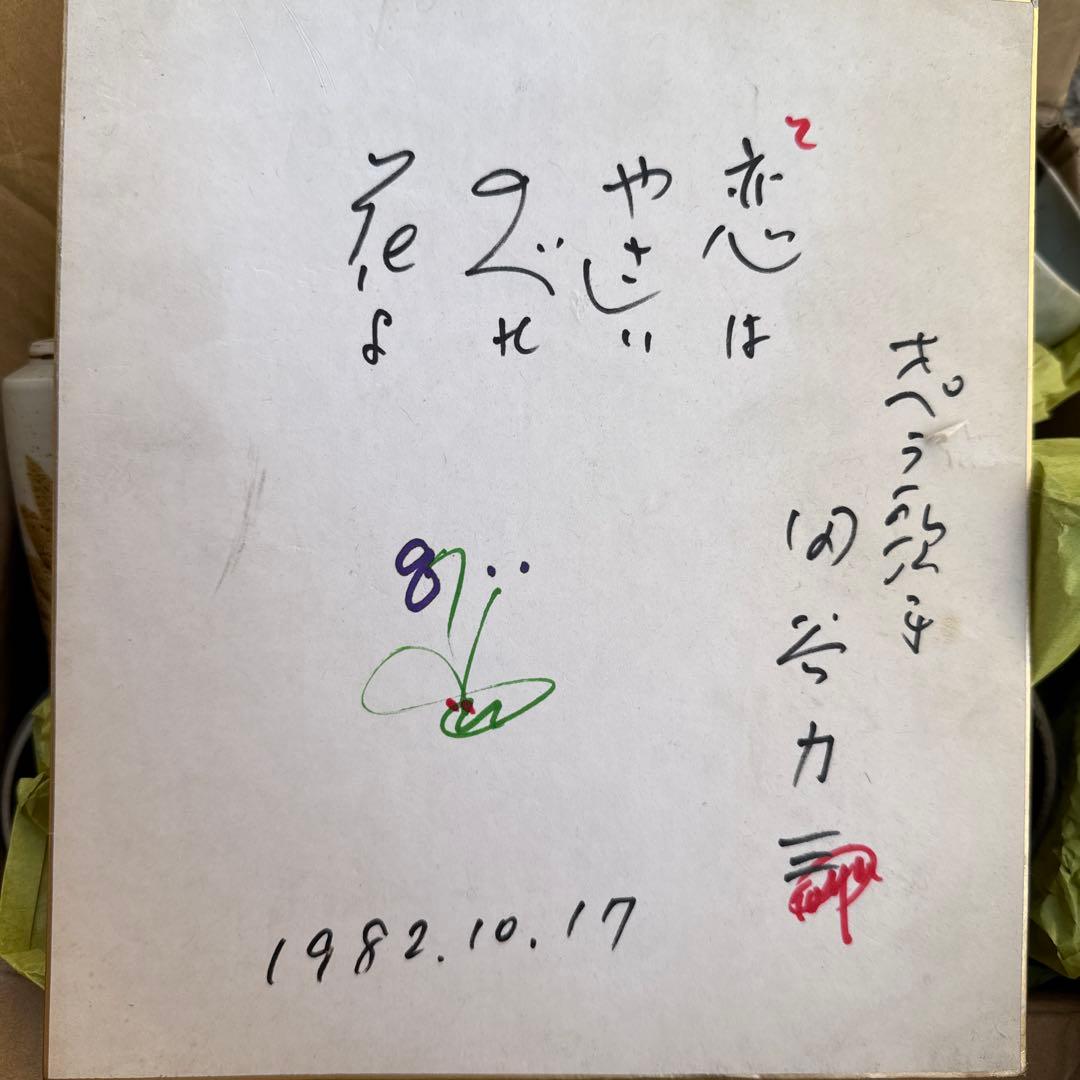 オペラ歌手
田谷力三
恋は
やさし
い
のべ
の
花よ
1982.10.17